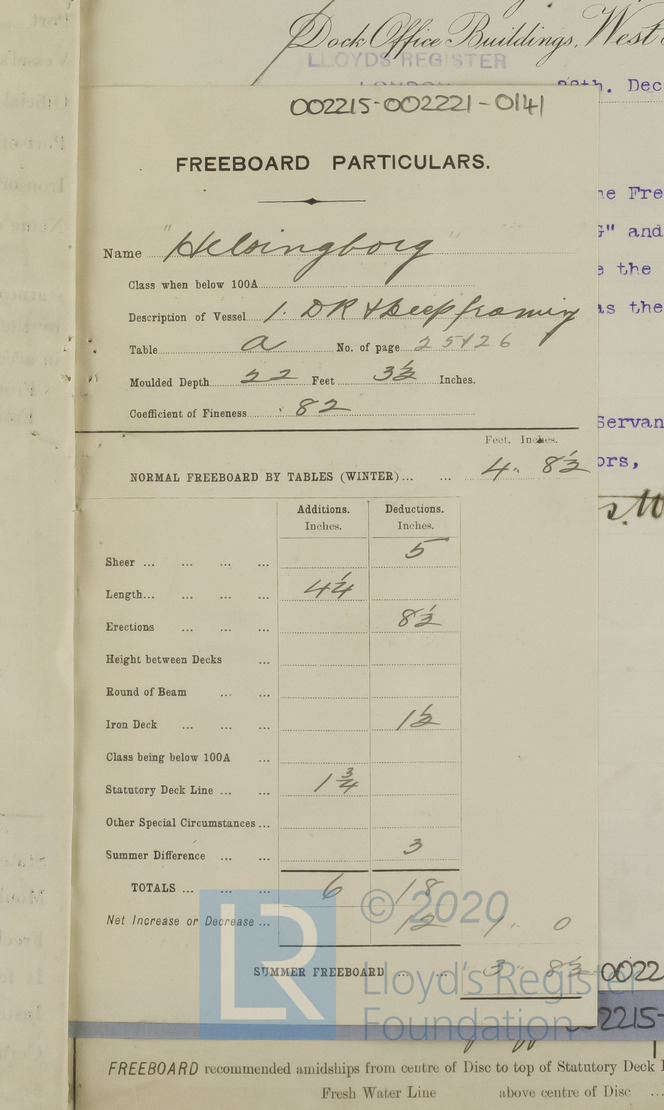 Dock Office Buildings, West
LLOYD'S REGISTER
LONDON
28th. Dec
002215-002221-0141
FREEBOARD PARTICULARS.
he Fre
G" and
Name "Helsingborg"
e the
Class when below 100A
as the
Description of Vessel 1. DK & Deep framing
Table a No. of page 25 & 26
Moulded Depth 22 Feet 3½ Inches.
Coefficient of Fineness .82
Servan
Feet. Inches.
ors,
NORMAL FREEBOARD BY TABLES (WINTER)... ... 4. 8½
Additions. Deductions.
Inches. Inches.
Sheer ... ... ... ... 5
Length... ... ... ... 4¼
Erections ... ... ... 8½
Height between Decks ...
Round of Beam ... ...
Iron Deck ... ... ... 1½
Class being below 100A ...
Statutory Deck Line ... ... 1¾
Other Special Circumstances ...
Summer Difference ... ... 3
TOTALS ... ... ... 6 18
Net Increase or Decrease ... 12 1. 0
SUMMER FREEBOARD ... ... 3 8½
0022
2215-
LR
© 2020
Lloyd's Register
Foundation
FREEBOARD recommended amidships from centre of Disc to top of Statutory Deck
Fresh Water Line above centre of Disc ...